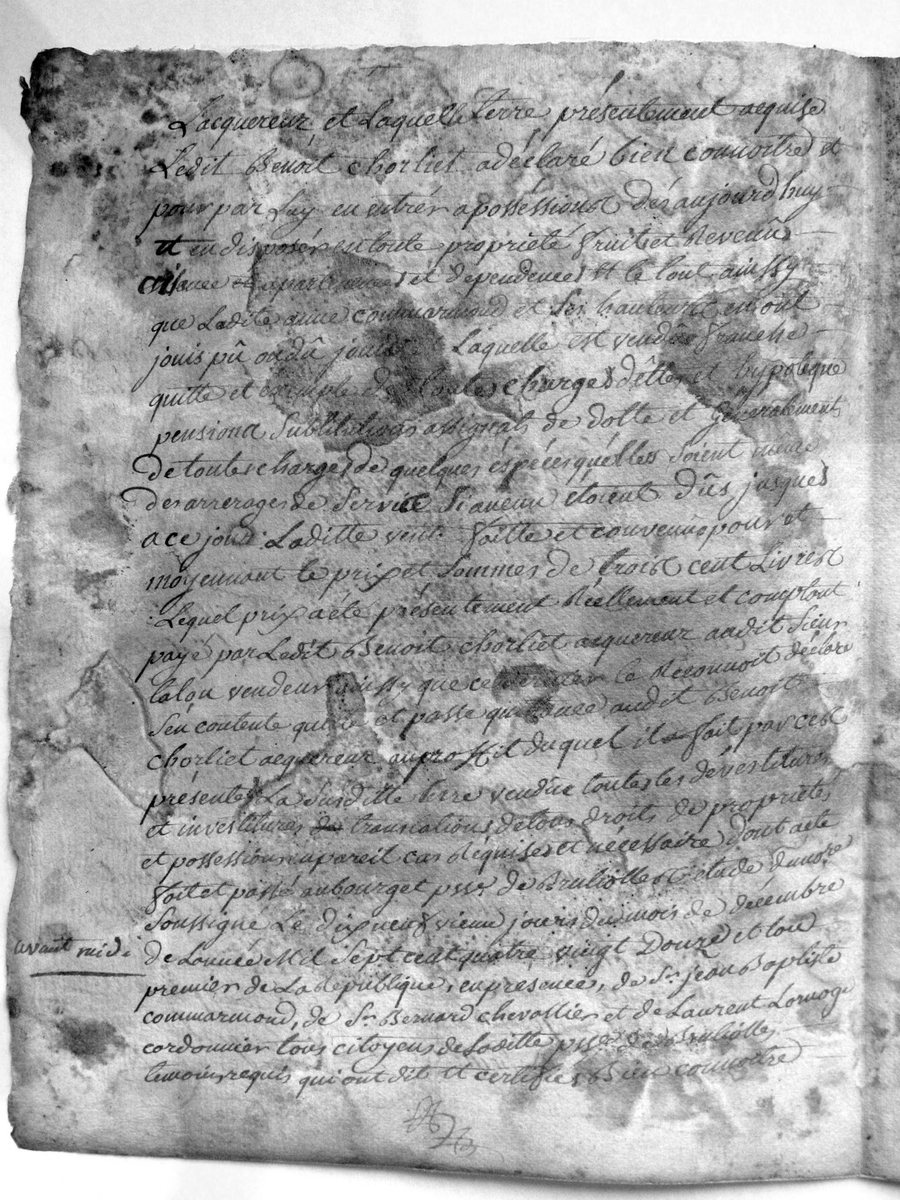 Lacquereur, et Laquelle terre présentement acquise
Ledit Benoit Chorliet a déclaré bien connoitre et
pour par Luy en entrér a posséssion dés aujourdhuy
et en disposér en toute proprieté fruit et Revenûs
aisance apartenances et dependences et le tout ainssy
que Ladite anne commarmond et Ses hauteurs en ont
jouis pû ou dû jouir Laquelle est vendûe franche
quitte et exemple de toutes charges dêttes et hypoteque
pensions Substitutions assignats de dotte et Généralement
De toutes charges de quelques éspéces qu'elles Soient meme
des arrerages de Servis Si aucun étoient dûs jusques
a ce jour. Laditte vente faitte et convenûe pour et
moyennant le prix et Sommes de trois cent Livres
Lequel prix a eté présentement Réellement et comptant
payé par Ledit Benoit Chorliet acquereur audit Sieur
lalou vendeur ainssy que ce dernier le Reconnoit déclare
S'en contente quitte et passe quittance audit Benoit
Chorliet acquereur au proffit duquel il fait par ces
présentes La Susditte terre vendûe toutes les dévestitures
et investitures translations de tous droits de proprietés
et possessions en pareil cas Requises et nécessaire dont acte
fait et passé au bourg et pssе. de Brullolles étude du nore
Soussigné Le dix neufvieme jours du mois de décembre
avant midi
de Lannée Mil Sept cent quatre vingt Douze et lan
premier de La République, en presences, de Sr. jean Baptiste
commarmond, de Sr. Bernard chevallier et de Laurent Lornage
cordonnier tous citoyens de Laditte psse. de Brullolles
temoins requis qui ont dit et certifiés Bien connoitre